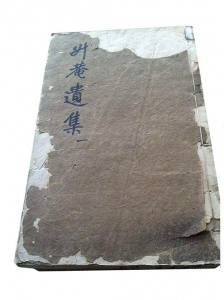 升菴遺集一